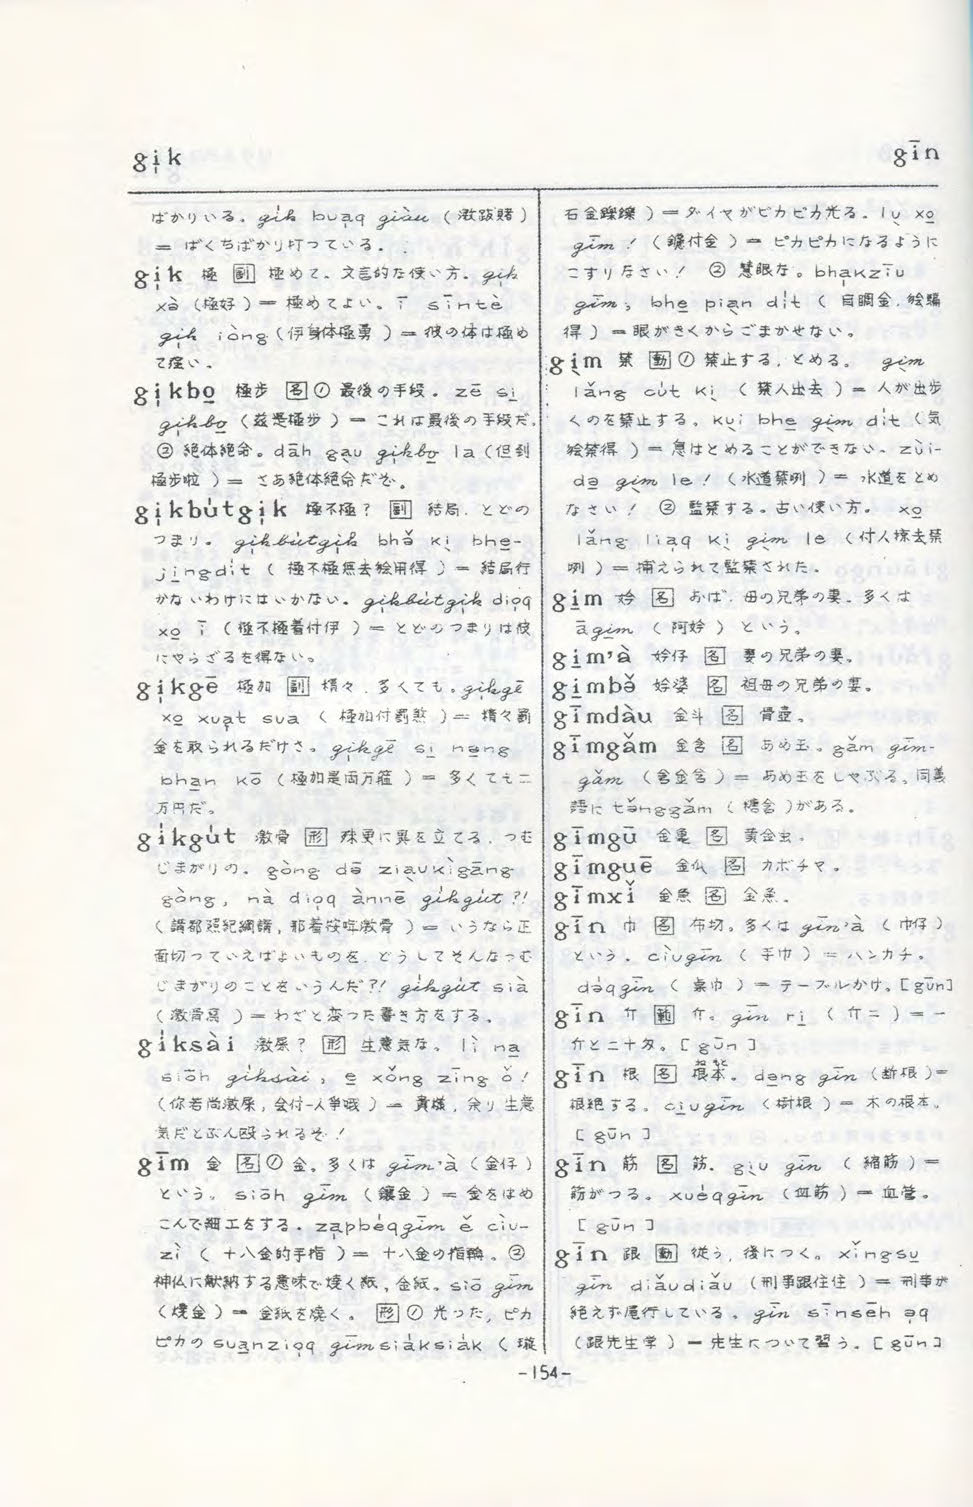 gi̍k
gīn
ばかりいる。gi̍k buaq giàu (激跋賭)
= ばくちばかり打っている。
gi̍k 極 副 極めて。文言的な使い方。gi̍k
xò (極好) = 極めてよい。ī sīntè
gi̍k iòng (伊身体極勇) = 彼の体は極め
て強い。
gi̍kbo 極歩 名 ① 最後の手段。zē si
gi̍kbo (玆是極歩) = これは最後の手段だ。
② 絶体絶命。dāh gau gi̍kbo la (但到
極歩啦) = さあ絶体絶命だぞ。
gi̍kbútgi̍k 極不極? 副 結局、とどの
つまり。gi̍kbútgi̍k bhə̌ ki bhe-
jingdit (極不極無去絵用得) = 結局行
かないわけにはいかない。gi̍kbútgi̍k dioq
xo ī (極不極着付伊) = とどのつまりは彼
にやらざるを得ない。
gi̍kgē 極加 副 精々、多くても。gi̍kgē
xo xuat sua (極加付罰煞) = 精々罰
金を取られるだけさ。gi̍kgē si nəng
bhan kō (極加是両万箍) = 多くても二
万円だ。
gikgút 激骨 形 殊更に異を立てる、つむ
じまがりの。gòng də ziaukìgāng-
gòng, nà dioq ànnē gikgút?!
(講都照紀綱講,那着按哖激骨) = いうなら正
面切っていえばよいものを、どうしてそんなつむ
じまがりのことをいうんだ?! gikgút sià
(激骨寫) = わざと変った書き方をする。
giksài 激屎? 形 生意気な。lì na
siōh giksài, e xǒng zīng ǒ!
(你若尚激屎,会付-人舂哦) = 貴様,余り生意
気だとぶん殴られるぞ!
gīm 金 名 ① 金。多くは gīm'à (金仔)
という。siōh gīm (鑲金) = 金をはめ
こんで細工をする。zapbéqgīm ě cìu-
zì (十八金的手指) = 十八金の指輪。②
神仏に献納する意味で焼く紙,金紙。siō gīm
(焼金) = 金紙を焼く。形 ① 光った,ピカ
ピカの suanzioq gīmsiáksiák (璇
石金鑠鑠) = ダイヤがピカピカ光る。lu xo
gīm! (鑢付金) = ピカピカになるように
こすりなさい! ② 慧眼な。bhakzīu
gīm, bhe pian dit (目睭金,絵騙
得) = 眼がきくからごまかせない。
gìm 禁 動 ① 禁止する、とめる。gìm
lǎng cút ki (禁人出去) = 人が出歩
くのを禁止する。kui bhe gìm dit (気
絵禁得) = 息はとめることができない。zùi-
də gìm le! (水道禁咧) = 水道をとめ
なさい! ② 監禁する。古い使い方。xo
lǎng liaq ki gìm le (付人掠去禁
咧) = 捕えられて監禁された。
gim 妗 名 おば、母の兄弟の妻。多くは
āgim (阿妗) という。
gim'à 妗仔 名 妻の兄弟の妻。
gimbə̌ 妗婆 名 祖母の兄弟の妻。
gīmdàu 金斗 名 骨壺。
gīmgǎm 金含 名 あめ玉。gǎm gīm-
gǎm (含金含) = あめ玉をしゃぶる。同義
語に tə̌nggǎm (糖含)がある。
gīmgū 金亀 名 黄金虫。
gīmguē 金仏 名 カボチャ。
gīmxǐ 金魚 名 金魚。
gīn 巾 名 布切。多くは gīn'à (巾仔)
という。cìugīn (手巾) = ハンカチ。
dəqgīn (桌巾) = テーブルかけ。[gūn]
gīn 斤 範 斤。gīn ri (斤二) = 一
斤と二十匁。[gūn]
gīn 根 名 根本(ねもと)。dəng gīn (断根)=
根絶する。ciugīn (樹根) = 木の根本。
[gūn]
gīn 筋 名 筋。giu gīn (縮筋) =
筋がつる。xuéqgīn (血筋) = 血管。
[gūn]
gīn 跟 動 従う,後につく。xǐngsu
gīn diǎudiǎu (刑事跟住住) = 刑事が
絶えず尾行している。gīn sīnsēh əq
(跟先生学) = 先生について習う。[gūn]
-154-